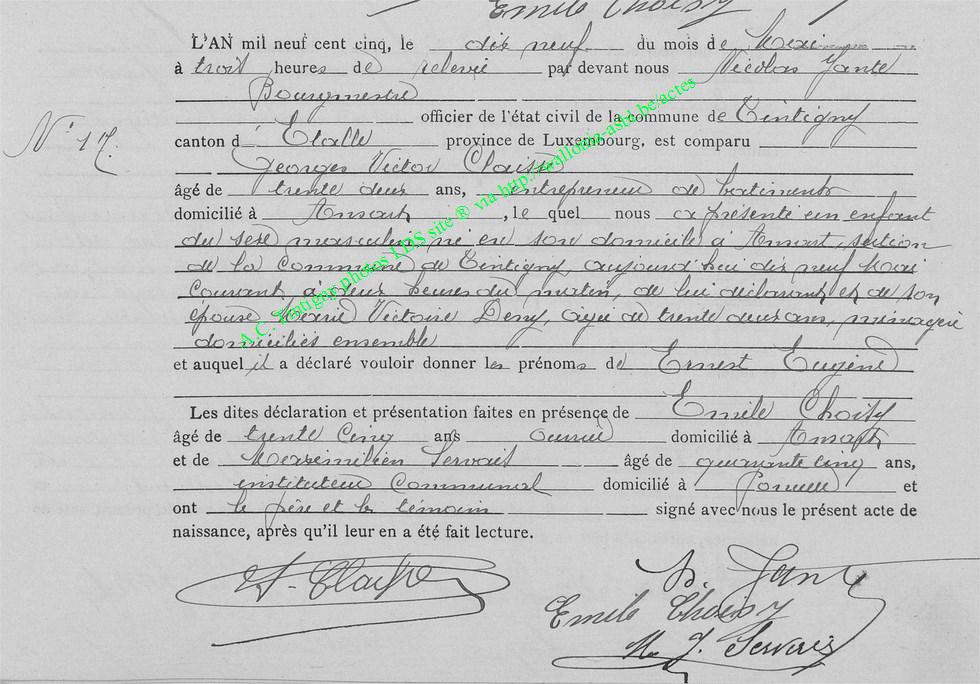 Emile Choisy
L'AN mil neuf cent cinq, le dix neuf du mois de Mai
à trois heures de relevée par devant nous Nicolas Jante
Bourgmestre
officier de l'état civil de la commune de Tintigny
N° 17.
canton d' Etalle province de Luxembourg, est comparu
Georges Victor Claisse
âgé de trente deux ans, entrepreneur de batiments
domicilié à Ansart, le quel nous a présenté un enfant
du sexe masculin né en son domicile à Ansart, section
de la Commune de Tintigny, aujourd'hui dix neuf Mai
courant, à deux heures du matin, de lui déclarant et de son
épouse Marie Victoire Deny, agée de trente deux ans, ménagère
domiciliés ensemble
et auquel il a déclaré vouloir donner les prénoms de Ernest Eugène
Les dites déclaration et présentation faites en présence de Emile Choisy
âgé de trente cinq ans ouvrier domicilié à Ansart
et de Maximilien Servais âgé de quarante cinq ans,
instituteur Communal domicilié à et
ont le père et les témoins signé avec nous le présent acte de
naissance, après qu'il leur en a été fait lecture.
V. Claisse
N. Jante
Emile Choisy
M. J. Servais
A.C. Tintigny photos LDS site ® via http://agllobia-asbl.be/actes